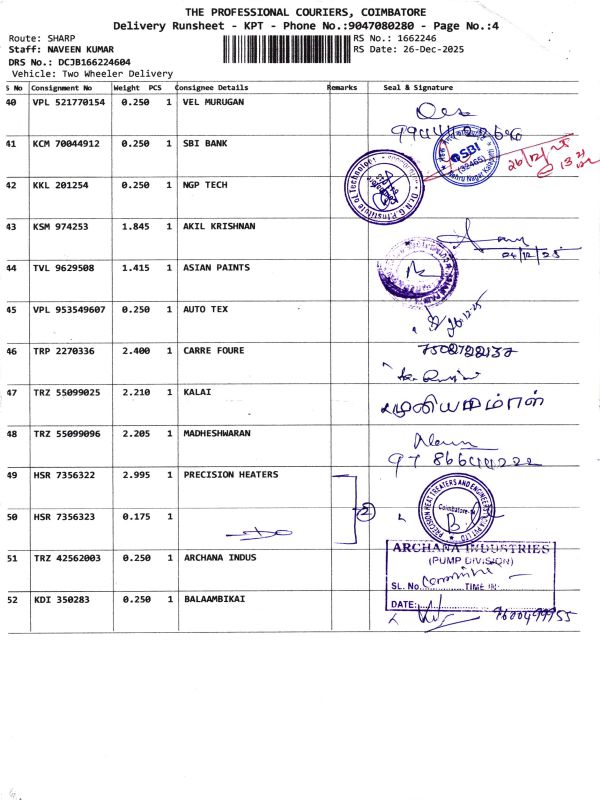 THE PROFESSIONAL COURIERS, COIMBATORE
Delivery Runsheet - KPT - Phone No.:9047080280 - Page No.:4
Route: SHARP RS No.: 1662246
Staff: NAVEEN KUMAR RS Date: 26-Dec-2025
DRS No.: DCJB166224604
Vehicle: Two Wheeler Delivery
S No Consignment No Weight PCS Consignee Details Remarks Seal & Signature
40 VPL 521770154 0.250 1 VEL MURUGAN
41 KCM 70044912 0.250 1 SBI BANK
SBI
(32465)
Nehru Nagar
26/12/25
42 KKL 201254 0.250 1 NGP TECH
Dr. N.G.P. Institute of Technology
43 KSM 974253 1.845 1 AKIL KRISHNAN
44 TVL 9629508 1.415 1 ASIAN PAINTS
45 VPL 953549607 0.250 1 AUTO TEX
26-12-25
46 TRP 2270336 2.400 1 CARRE FOURE
47 TRZ 55099025 2.210 1 KALAI
48 TRZ 55099096 2.205 1 MADHESHWARAN
49 HSR 7356322 2.995 1 PRECISION HEATERS
2
PRECISION HEATREATERS AND ENGINEERS
Coimbatore
50 HSR 7356323 0.175 1
51 TRZ 42562003 0.250 1 ARCHANA INDUS
ARCHANA INDUSTRIES
(PUMP DIVISION)
SL. No. TIME IN:
DATE:
52 KDI 350283 0.250 1 BALAAMBIKAI
9600499955